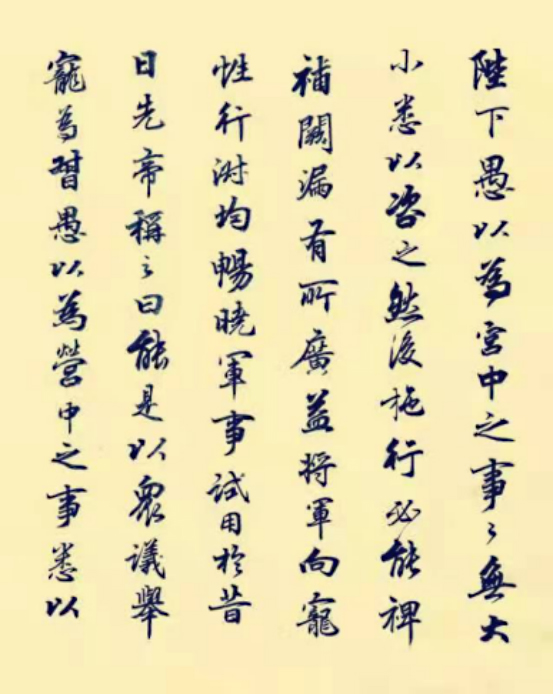 陛下愚以為宮中之事々無大
小悉以咨之然後施行必能裨
補闕漏有所廣益將軍向寵
性行淑均暢曉軍事試用於昔
日先帝稱之曰能是以眾議舉
寵為督愚以為營中之事悉以